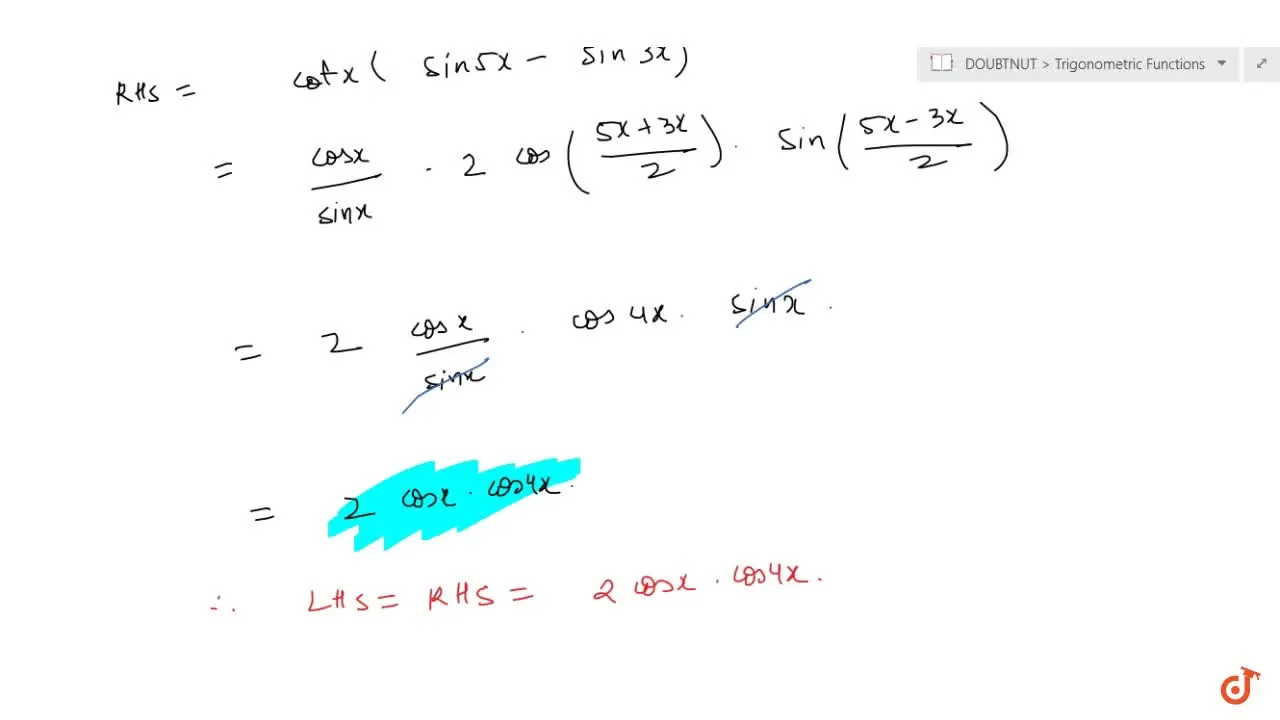 DOUBTNUT > Trigonometric Functions
RHS = cotx ( sin5x − sin 3x)
= cosx/sinx · 2 cos((5x+3x)/2) · sin((5x−3x)/2)
= 2 cosx/sinx · cos4x · sinx .
= 2 cosx · cos4x .
∴ LHS = RHS = 2 cosx · cos4x .